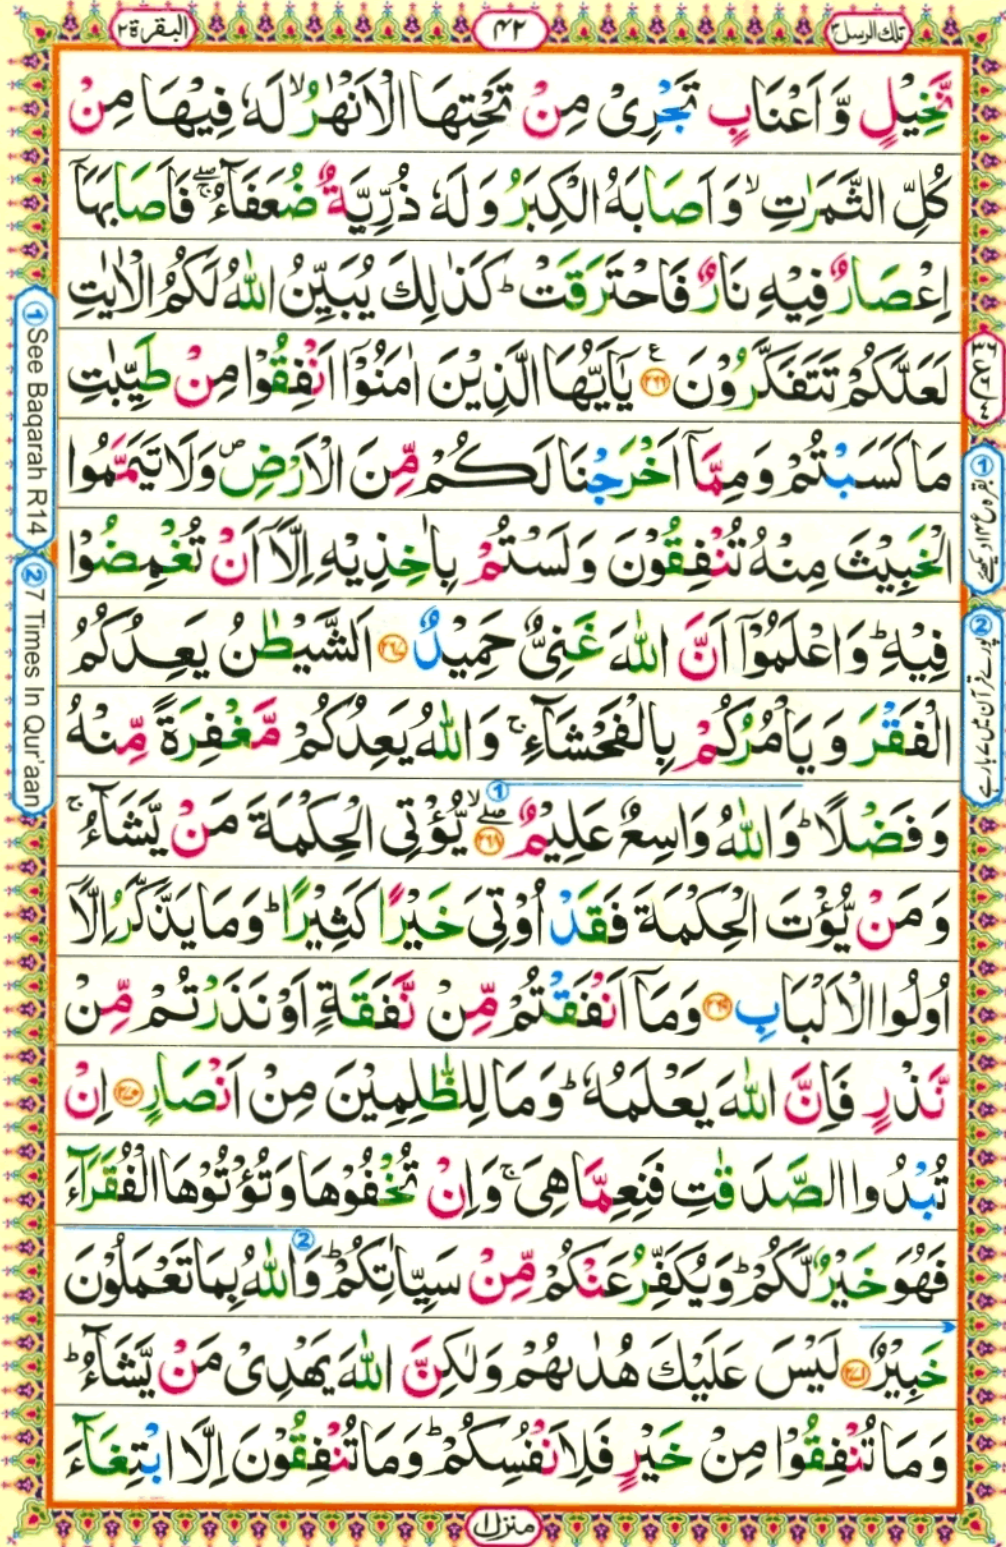 تلك الرسل ۳
۴۲
البقرة ۲
نَّخِيْلٍ وَّ اَعْنَابٍ تَجْرِىْ مِنْ تَحْتِهَا الْاَنْهٰرُ ۙ لَهٗ فِيْهَا مِنْ
كُلِّ الثَّمَرٰتِ ۙ وَ اَصَابَهُ الْكِبَرُ وَ لَهٗ ذُرِّيَّةٌ ضُعَفَآءُ ۖۚ فَاَصَابَهَاۤ
اِعْصَارٌ فِيْهِ نَارٌ فَاحْتَرَقَتْ ؕ كَذٰلِكَ يُبَيِّنُ اللّٰهُ لَكُمُ الْاٰيٰتِ
لَعَلَّكُمْ تَتَفَكَّرُوْنَ ۧ ﴿۲۶۶﴾ يٰۤاَيُّهَا الَّذِيْنَ اٰمَنُوْۤا اَنْفِقُوْا مِنْ طَيِّبٰتِ
مَا كَسَبْتُمْ وَ مِمَّاۤ اَخْرَجْنَا لَكُمْ مِّنَ الْاَرْضِ ۪ وَ لَا تَيَمَّمُوا
الْخَبِيْثَ مِنْهُ تُنْفِقُوْنَ وَ لَسْتُمْ بِاٰخِذِيْهِ اِلَّاۤ اَنْ تُغْمِضُوْا
فِيْهِ ؕ وَ اعْلَمُوْۤا اَنَّ اللّٰهَ غَنِىٌّ حَمِيْدٌ ﴿۲۶۷﴾ اَلشَّيْطٰنُ يَعِدُكُمُ
الْفَقْرَ وَ يَاْمُرُكُمْ بِالْفَحْشَآءِ ۚ وَ اللّٰهُ يَعِدُكُمْ مَّغْفِرَةً مِّنْهُ
وَ فَضْلًا ؕ وَ اللّٰهُ وَاسِعٌ عَلِيْمٌ ۖۙ ﴿۲۶۸﴾ ① يُّؤْتِى الْحِكْمَةَ مَنْ يَّشَآءُ ۚ
وَ مَنْ يُّؤْتَ الْحِكْمَةَ فَقَدْ اُوْتِىَ خَيْرًا كَثِيْرًا ؕ وَ مَا يَذَّكَّرُ اِلَّاۤ
اُولُوا الْاَلْبَابِ ﴿۲۶۹﴾ وَ مَاۤ اَنْفَقْتُمْ مِّنْ نَّفَقَةٍ اَوْ نَذَرْتُمْ مِّنْ
نَّذْرٍ فَاِنَّ اللّٰهَ يَعْلَمُهٗ ؕ وَ مَا لِلظّٰلِمِيْنَ مِنْ اَنْصَارٍ ﴿۲۷۰﴾ اِنْ
تُبْدُوا الصَّدَقٰتِ فَنِعِمَّا هِىَ ۚ وَ اِنْ تُخْفُوْهَا وَ تُؤْتُوْهَا الْفُقَرَآءَ
فَهُوَ خَيْرٌ لَّكُمْ ؕ وَ يُكَفِّرُ عَنْكُمْ مِّنْ سَيِّاٰتِكُمْ ؕ ② وَ اللّٰهُ بِمَا تَعْمَلُوْنَ
خَبِيْرٌ ﴿۲۷۱﴾ لَيْسَ عَلَيْكَ هُدٰىهُمْ وَ لٰكِنَّ اللّٰهَ يَهْدِىْ مَنْ يَّشَآءُ ؕ
وَ مَا تُنْفِقُوْا مِنْ خَيْرٍ فَلِاَنْفُسِكُمْ ؕ وَ مَا تُنْفِقُوْنَ اِلَّا ابْتِغَآءَ
منزل ۱
① See Baqarah R14
② 7 Times In Qur'aan
① بقرہ ع ۱۴ دیکھیے
② پورے قرآن میں ۷ بار ہے